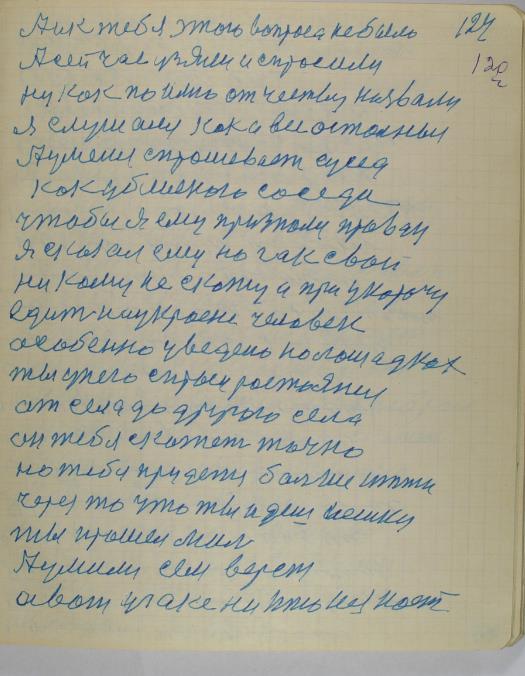 А ик тебя этого вопроса не было 127
А сейчас узяли и спросили 120
ни как по имю отчеству назвали
я слушали как а вси остольныи
А у меня спрошевает суседа
как убмленого соседа
чтобы я ему признали правду
я сказал ему но так свои
ни кому не скажу а при
едит на укроене человек
особенно уведено на лошадках
ты унего спроси ростояния
от села до другого села
он тебя скажет точно
но тебя придетя болше итти
через то что ты идеш пешки
ты прошел мил
А умили сем верст
а вот у ни хто не